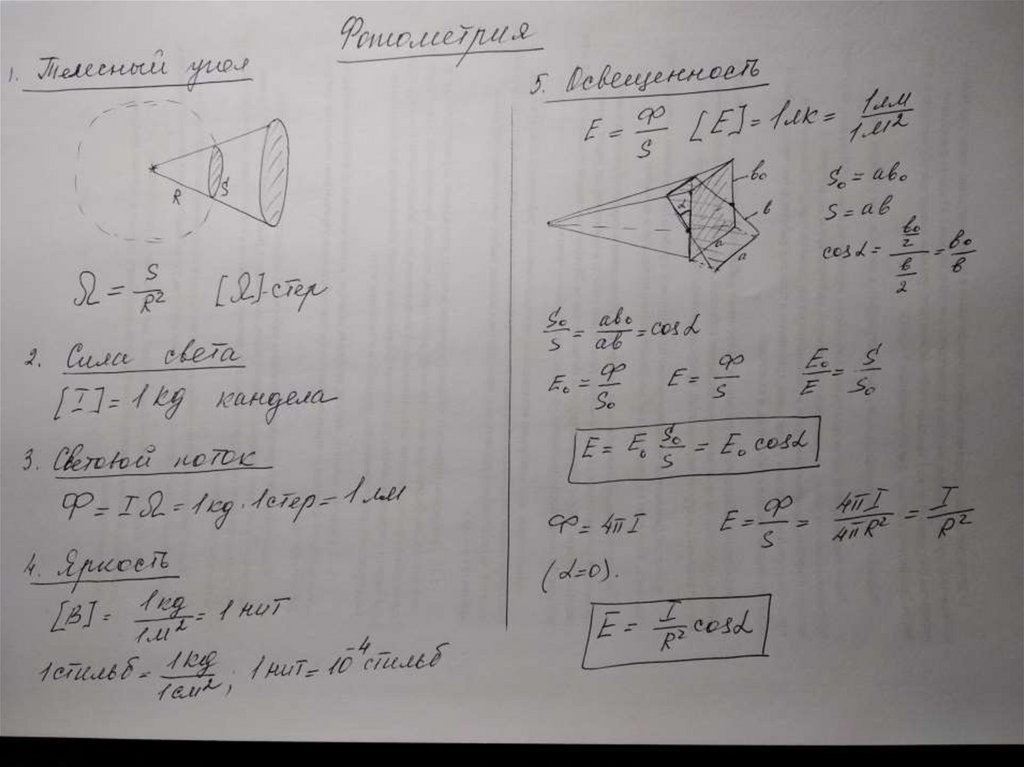 Фотометрия
1. Телесный угол
R S
Ω = S/R² [Ω]-стер
2. Сила света
[I] = 1кд кандела
3. Световой поток
Ф = IΩ = 1кд · 1стер = 1лм
4. Яркость
[B] = 1кд/1м² = 1 нит
1стильб = 1кд/1см²; 1нит = 10⁻⁴ стильб
5. Освещенность
E = Ф/S [E] = 1лк = 1лм/1м²
α b₀ b a a
S₀ = ab₀
S = ab
cosα = (b₀/2)/(b/2) = b₀/b
S₀/S = ab₀/ab = cosα
E₀ = Ф/S₀ E = Ф/S E₀/E = S/S₀
E = E₀ S₀/S = E₀ cosα
Ф = 4πI E = Ф/S = 4πI/4πR² = I/R²
(α=0).
E = I/R² cosα